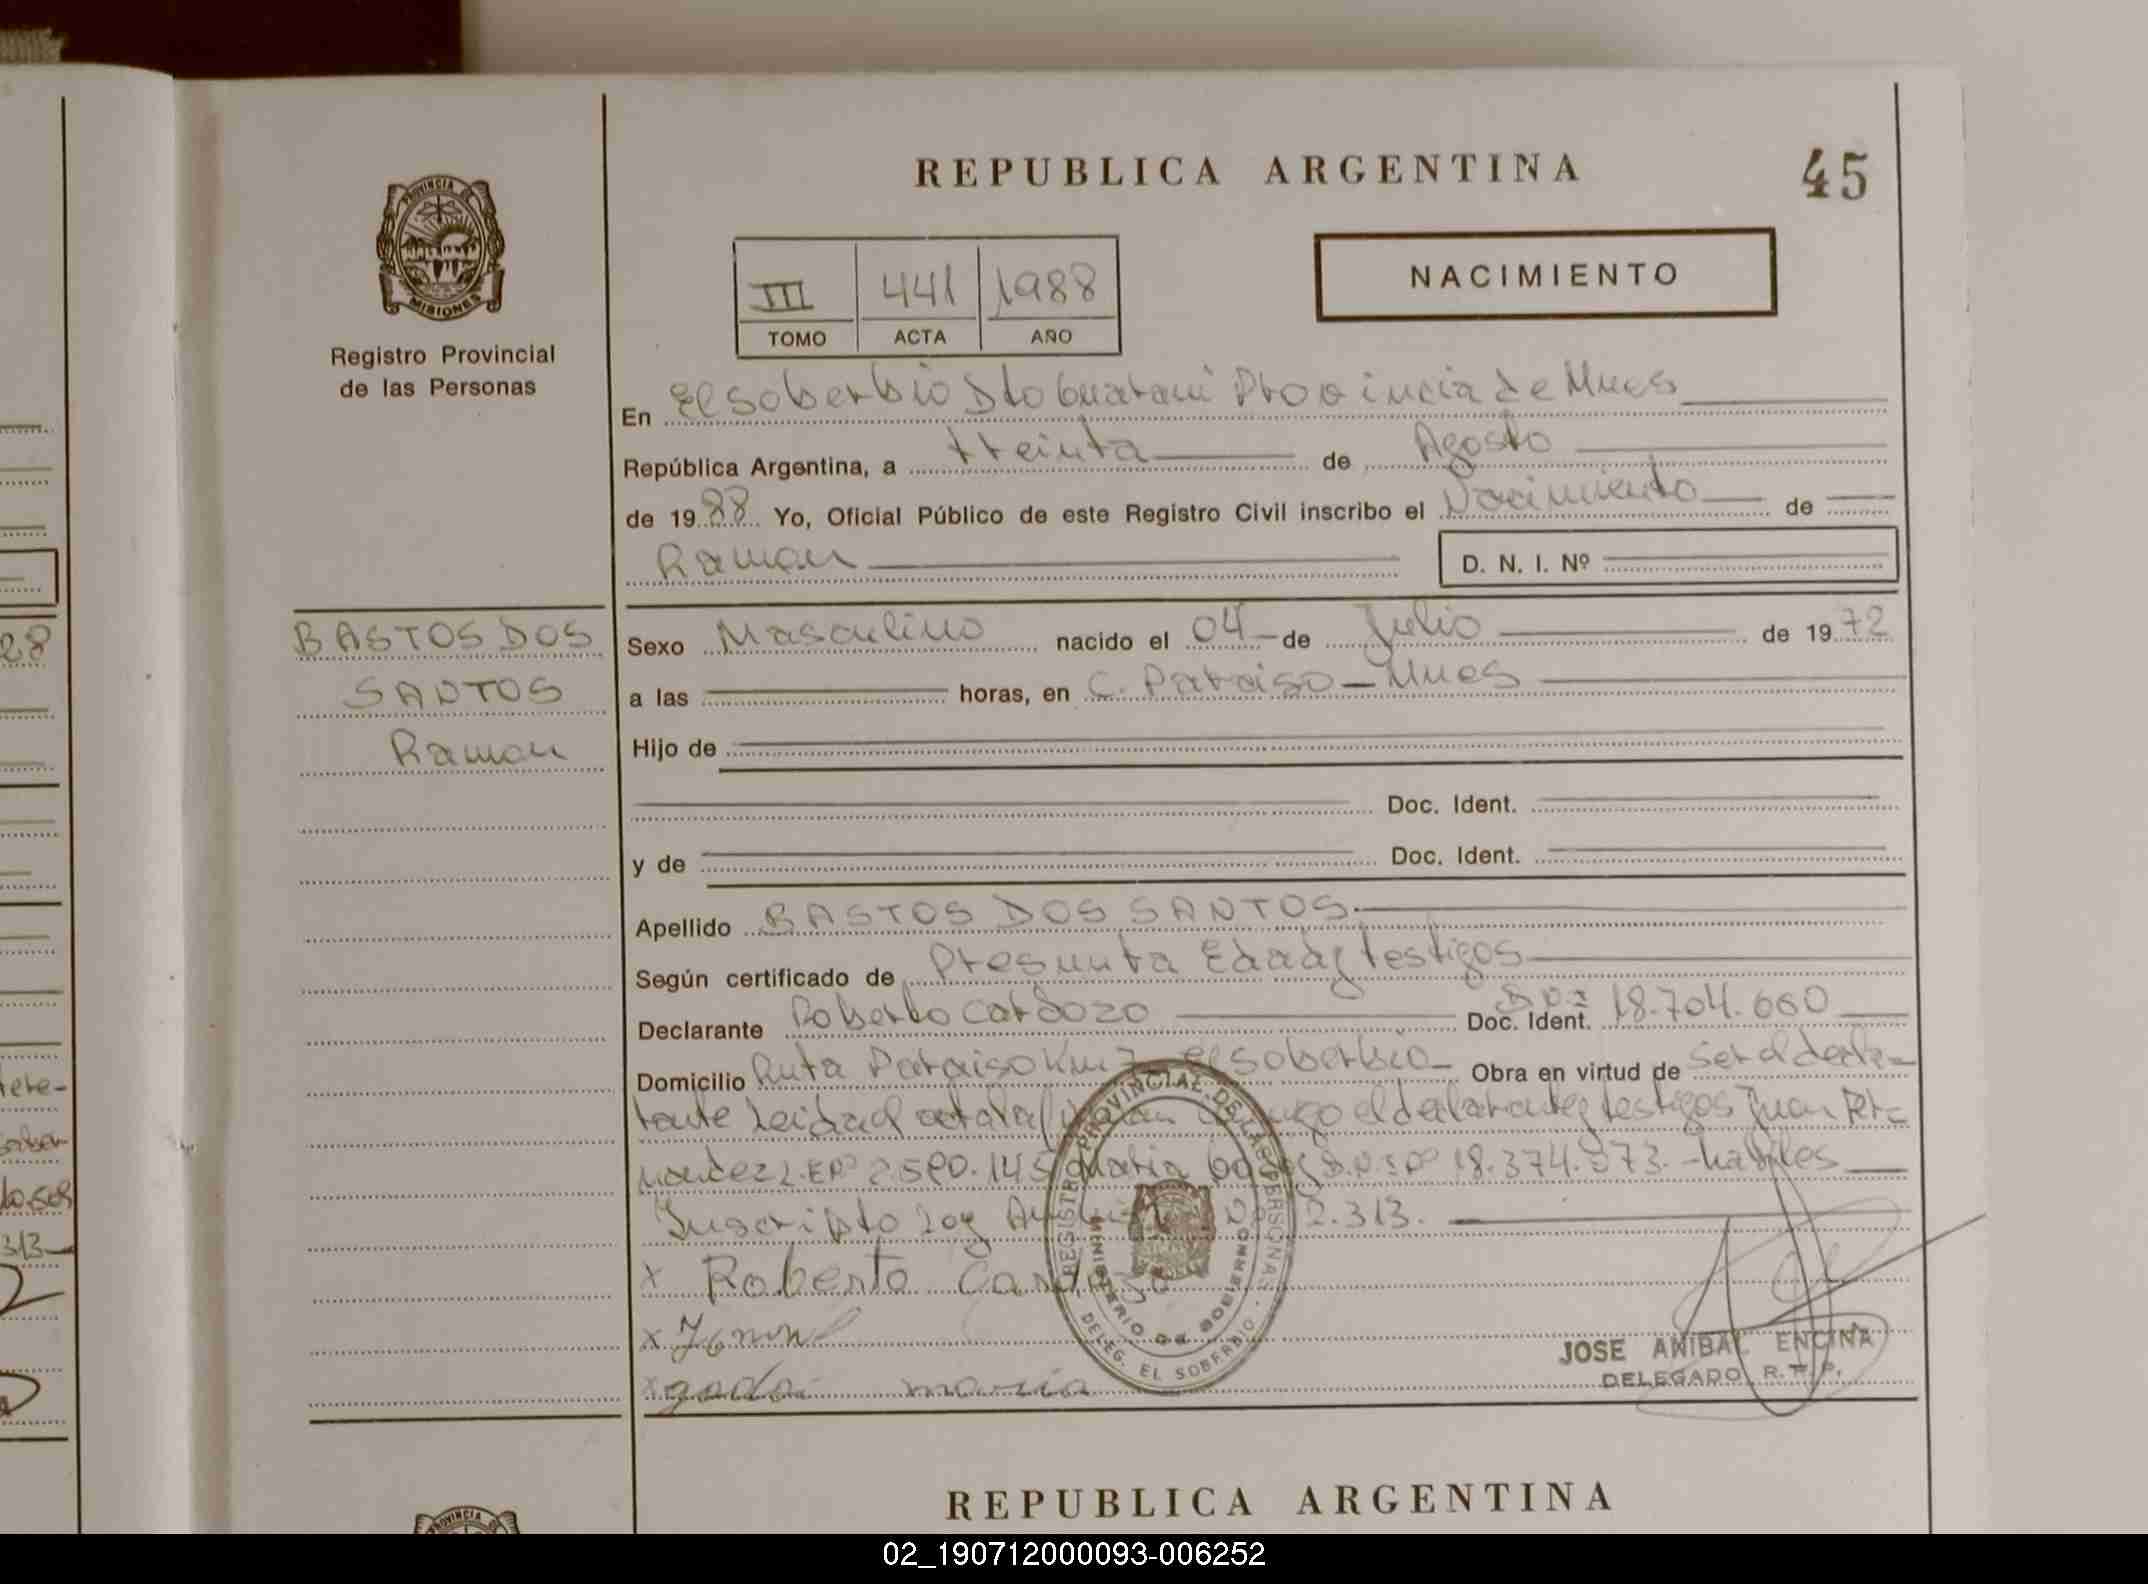 REPUBLICA ARGENTINA
45
PROVINCIA DE
MISIONES
Registro Provincial
de las Personas
III 441 1988
TOMO ACTA AÑO
NACIMIENTO
En El soberbio Dto Guarani Provincia de Mnes
República Argentina, a treinta de Agosto
de 1988 Yo, Oficial Público de este Registro Civil inscribo el Nacimiento de
Ramon D. N. I. Nº
BASTOS DOS
SANTOS
Ramon
Sexo Masculino nacido el 04 de Julio de 1972
a las horas, en C. Paraiso - Mnes
Hijo de
Doc. Ident.
y de Doc. Ident.
Apellido BASTOS DOS SANTOS
Según certificado de Presunta Edad y testigos
Declarante Roberto Cardozo Doc. Ident. 18.704.660
Domicilio Ruta Paraiso Km 7 El soberbio Obra en virtud de Ser el decla-
rante Leida el acta la el declarante y testigos Juan Fer
nandez L.E Nº 2.590.145 y Maria D.N.I Nº 18.374.373.- habiles
Inscripto Ley 2.313.
x Roberto Cardozo
x
x godoi maria
REGISTRO PROVINCIAL DE LAS PERSONAS
MINISTERIO DE GOBIERNO
DELEG. EL SOBERBIO
JOSE ANIBAL ENCINA
DELEGADO R. P. P.
REPUBLICA ARGENTINA
PROVINCIA DE
28
313
02_190712000093-006252